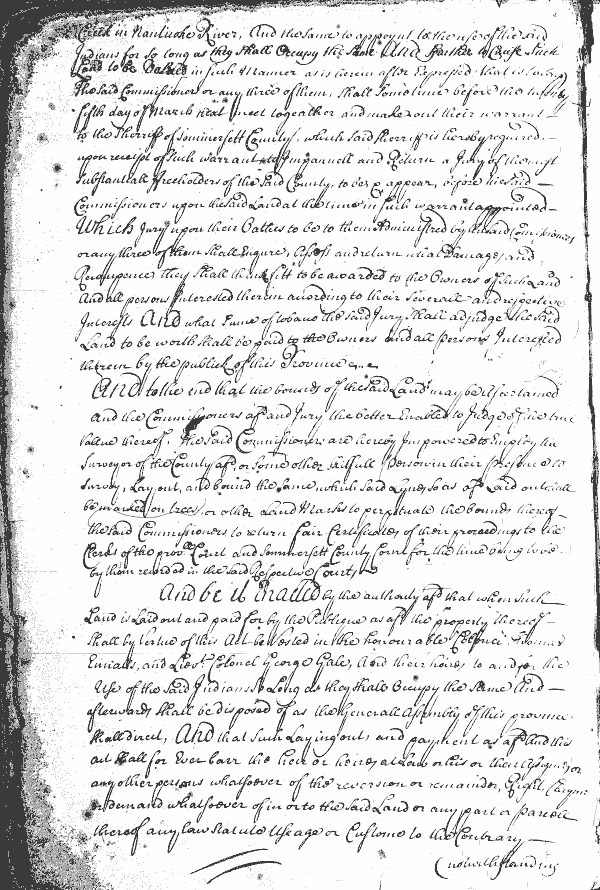 Creek in Nanticoke River, And the same to appoynt to the use of the said
Indians for so long as they Shall Occupy the Same And farther to Cause Such
Land to be Valued in such Manner as is herein after Expressed that is to say
the said Commissioners or any three of them, Shall Sometime before the twenty
fifth day of March next meet togeather and make out their warrant
to the Sherriff of Sommersett County, which said Sherriff is hereby required
upon receipt of Such warrant to Impannell and Return a Jury of the most
Substantiall freeholders of the said County, to be & appear, before the said
Commissioners upon the said Land at the time in such warrant appointed
Which Jury upon their Oathes to be to them Administred by the said Commissioners
or any three of them Shall Enquire, Assess and return what Damages and
Recompence they Shall think fitt to be awarded to the Owners of Such Land
And all persons Interested therein according to their Severall and respective
Interests And what Sume of tobacco the said Jury Shall adjudge the said
Land to be worth Shall be paid to the Owners and all persons Interested
therein by the publick of this Province
And to the end that the bounds of the said Land may be Ascertained
and the Commissioners afd and Jury the better Enabled to Judge of the true
Value thereof. The Said Commissioners are hereby Impowered to Employ the
Surveyor of the County afd or Some other skilfull Person in their presence to
Survey, Lay out, and bound the Same which said Lynes so as afd Laid out shall
be marked on trees or other Land Marks to perpetuate the bounds thereof
the said Commissioners to return fair Certificates of their proceedings to the
Clerks of the provll Court and Sommersett County Court for the time being to be
by them recorded in the said Respective Courts
And be it Enacted by the authority afd that when Such
Land is Laid out and paid for by the Publique as afd the property thereof
Shall by Virtue of this Act be Vested in the honourable Colonel Thomas
Ennalls, and Lieut. Colonel George Gale, and their heires to and for the
Use of the said Indians So Long as they Shall Occupy the Same And
afterwards Shall be disposed of as the Generall Assembly of this province
Shall direct, And that such Laying out, and payment as afd And this
act Shall for Ever barr the heir or heires at Law or his or their Assignes or
any other persons whatsoever of the reversion or remainder, Right, Claym
or demand whatsoever of in or to the said Land or any part or parcell
thereof any Law Statute Useage or Custome to the Contrary
notwithstanding